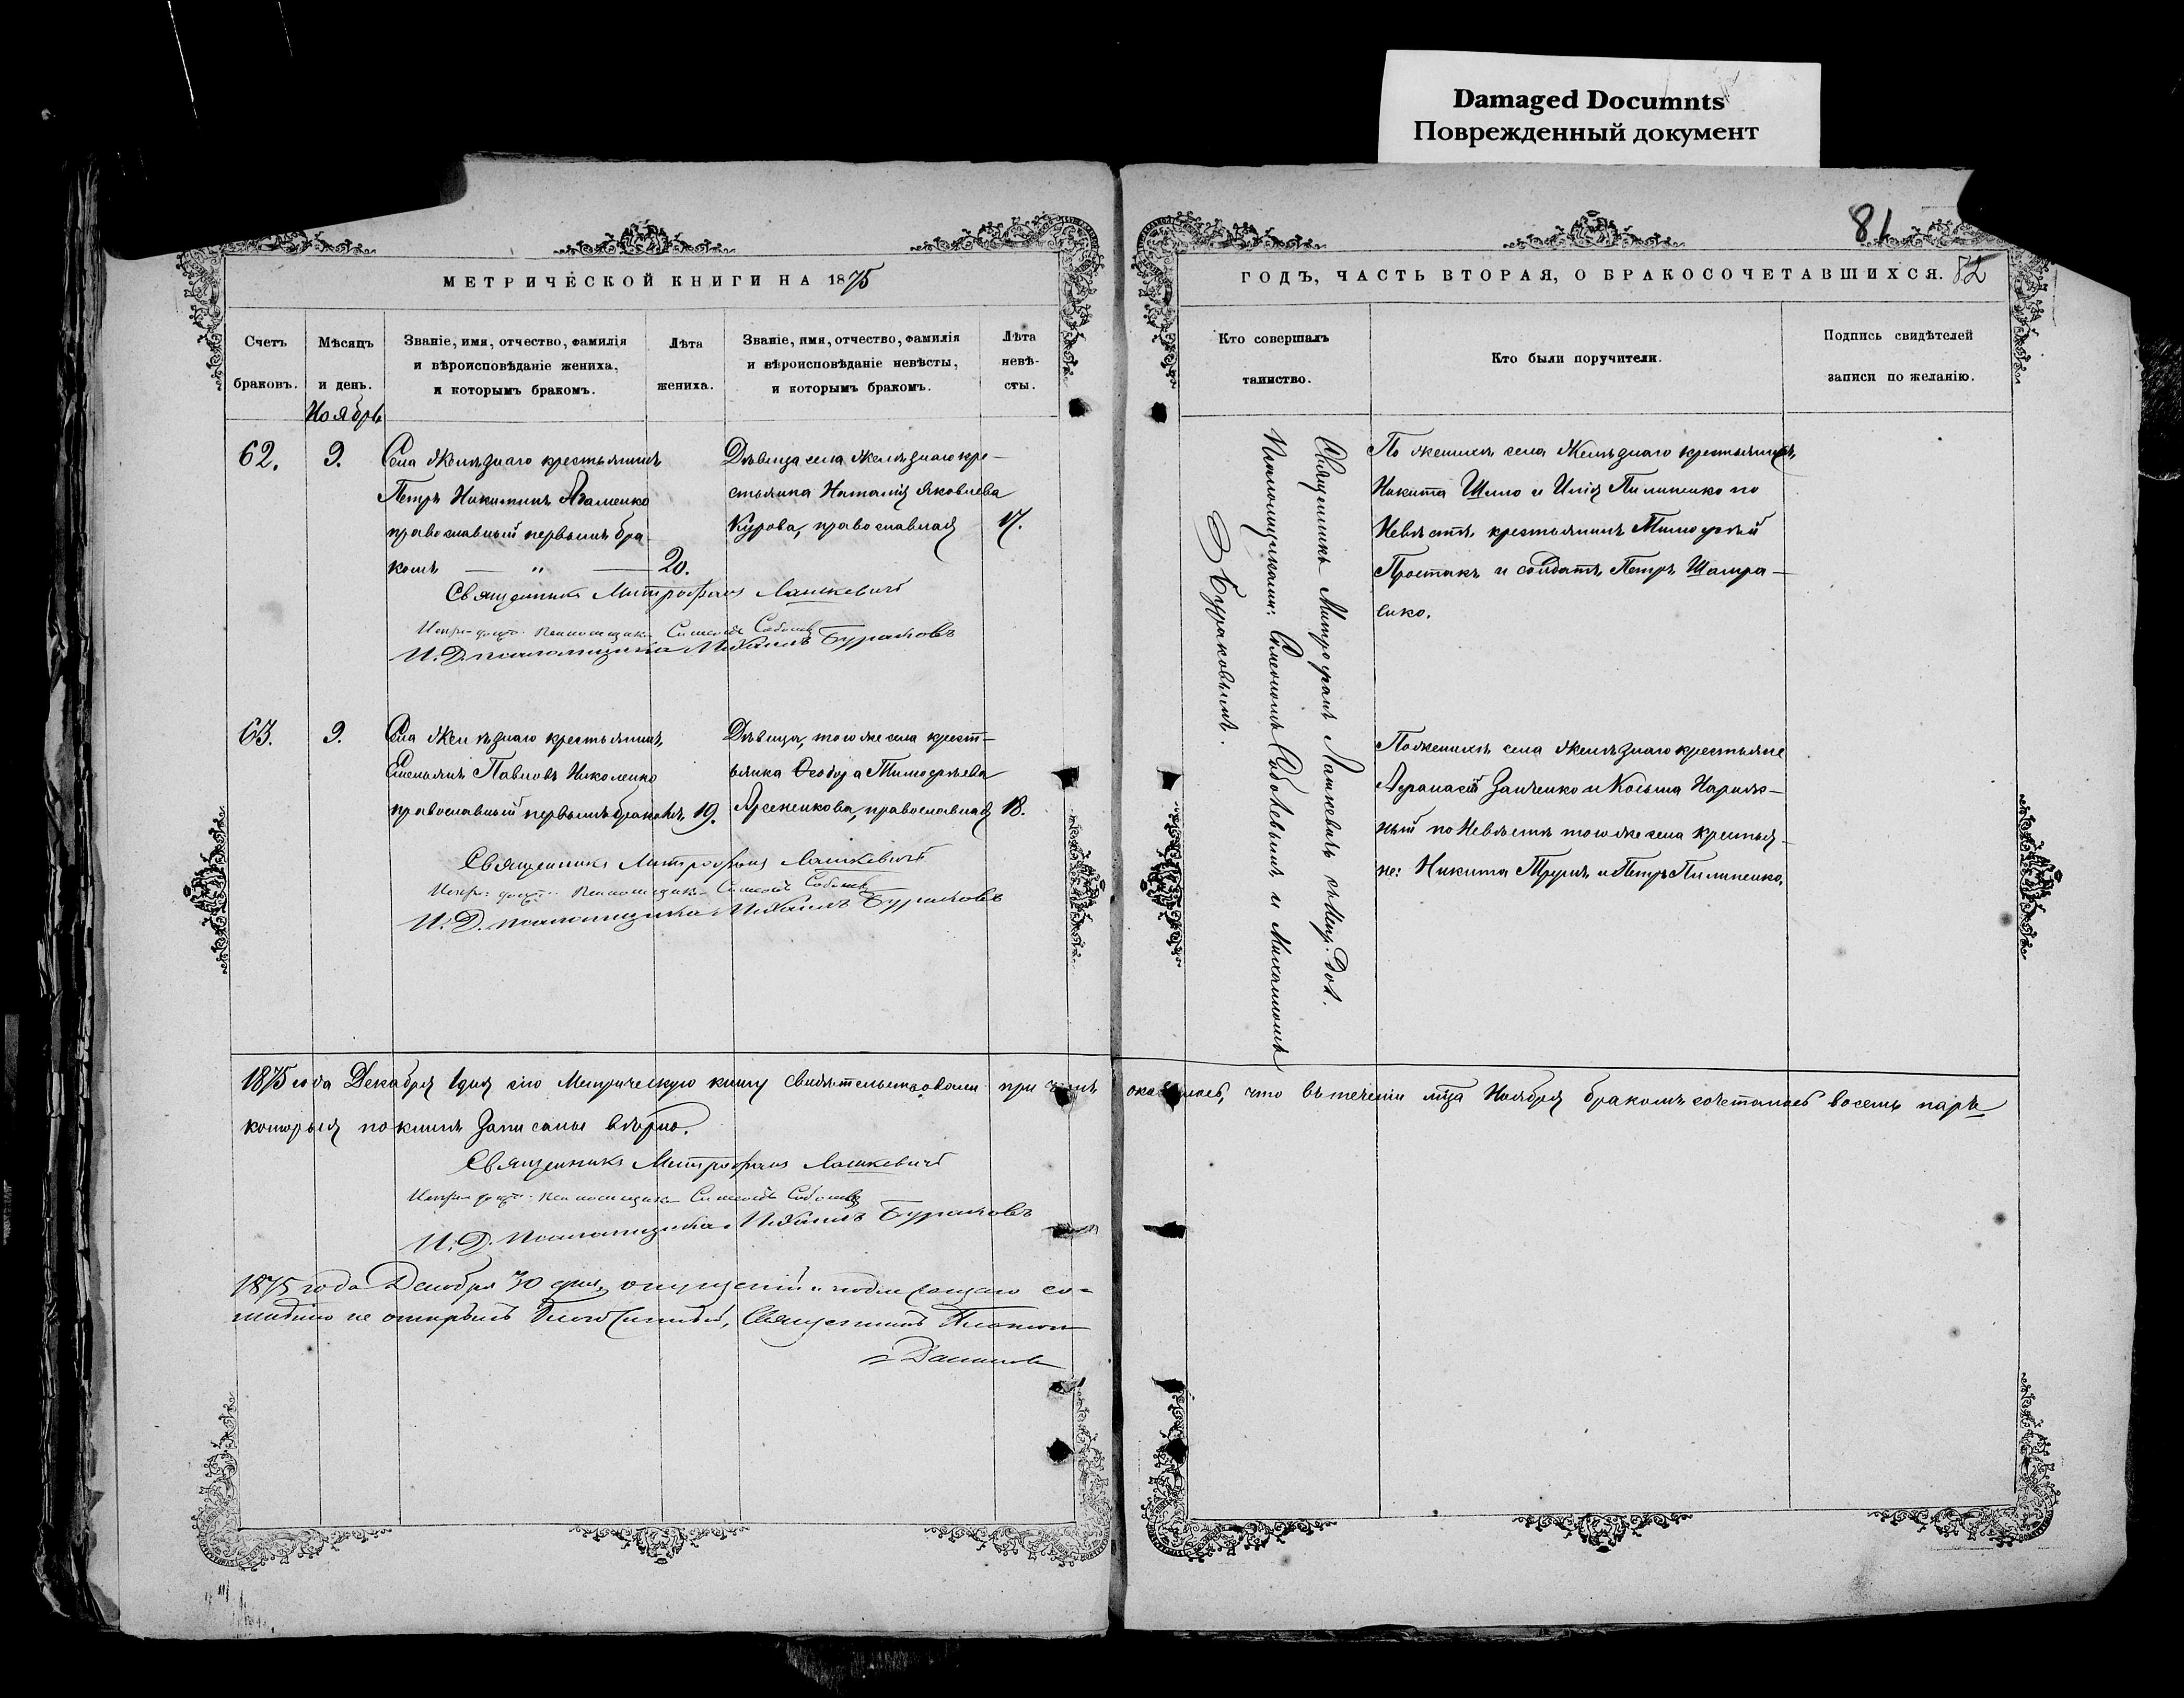 Damaged Documnts
Поврежденный документ
81
МЕТРИЧЕСКОЙ КНИГИ НА 1875
ГОДЪ, ЧАСТЬ ВТОРАЯ, О БРАКОСОЧЕТАВШИХСЯ. 82
Счетъ браковъ.
Мѣсяцъ и день.
Званіе, имя, отчество, фамилія
и вѣроисповѣданіе жениха,
и которымъ бракомъ.
Лѣта жениха.
Званіе, имя, отчество, фамилія
и вѣроисповѣданіе невѣсты,
и которымъ бракомъ.
Лѣта
невѣ-
сты.
Кто совершалъ
таинство.
Кто были поручители.
Подпись свидѣтелей
записи по желанію.
Ноябрь
62. 9.
Села Желѣзнаго крестьянинъ
Петръ Никитинъ
православный первымъ бра-
комъ — " — 20.
Дѣвица села Желѣзнаго кре-
стьянка Наталія Яковлева
Курова, православная 17.
Священникъ Митрофанъ Лашкевичъ
Псаломщика Симеонъ Соболевъ
И. Д. псаломщика Михаилъ Бураковъ
Священникъ Митрофанъ Лашкевичъ съ
Псаломщиками: Симеономъ Соболевымъ и Михаиломъ
Бураковымъ.
По женихѣ села Желѣзнаго крестьяниѣ
Никита Шило и Илія Пилипенко по
Невѣстѣ крестьянинъ Тимофей
Простакъ и солдатъ Петръ
63. 9.
Села Желѣзнаго крестьянинъ,
Емельянъ Павловъ Николенко
православный первымъ бракомъ, 19.
Дѣвица, того же села крест-
ьянка Ѳеодора Тимофѣева
Арсенкова, православная 18.
Священникъ Митрофанъ Лашкевичъ
Псаломщика Симеонъ Соболевъ
И. Д. псаломщика Михаилъ Бураковъ
По женихѣ села Желѣзнаго крестьяне
Афанасій Занченко и Косьма Нариж-
ный по Невѣстѣ того же села крестья-
не: Никита и Петръ Пилипенко.
1875 года Декабря 1 дня сію Метрическую книгу свидѣтельствовали при чемъ оказалось, что въ теченіи мѣца Ноября бракомъ сочеталось восемь паръ
которыя по книгѣ Записаны вѣрно.
Священникъ Митрофанъ Лашкевичъ
Псаломщика Симеонъ Соболевъ
И. Д. псаломщика Михаилъ Бураковъ
1875 года Декабря 30 дня, опущеній и подлежащаго со-
мнѣнію не открылъ Благочинный, Священникъ Платонъ